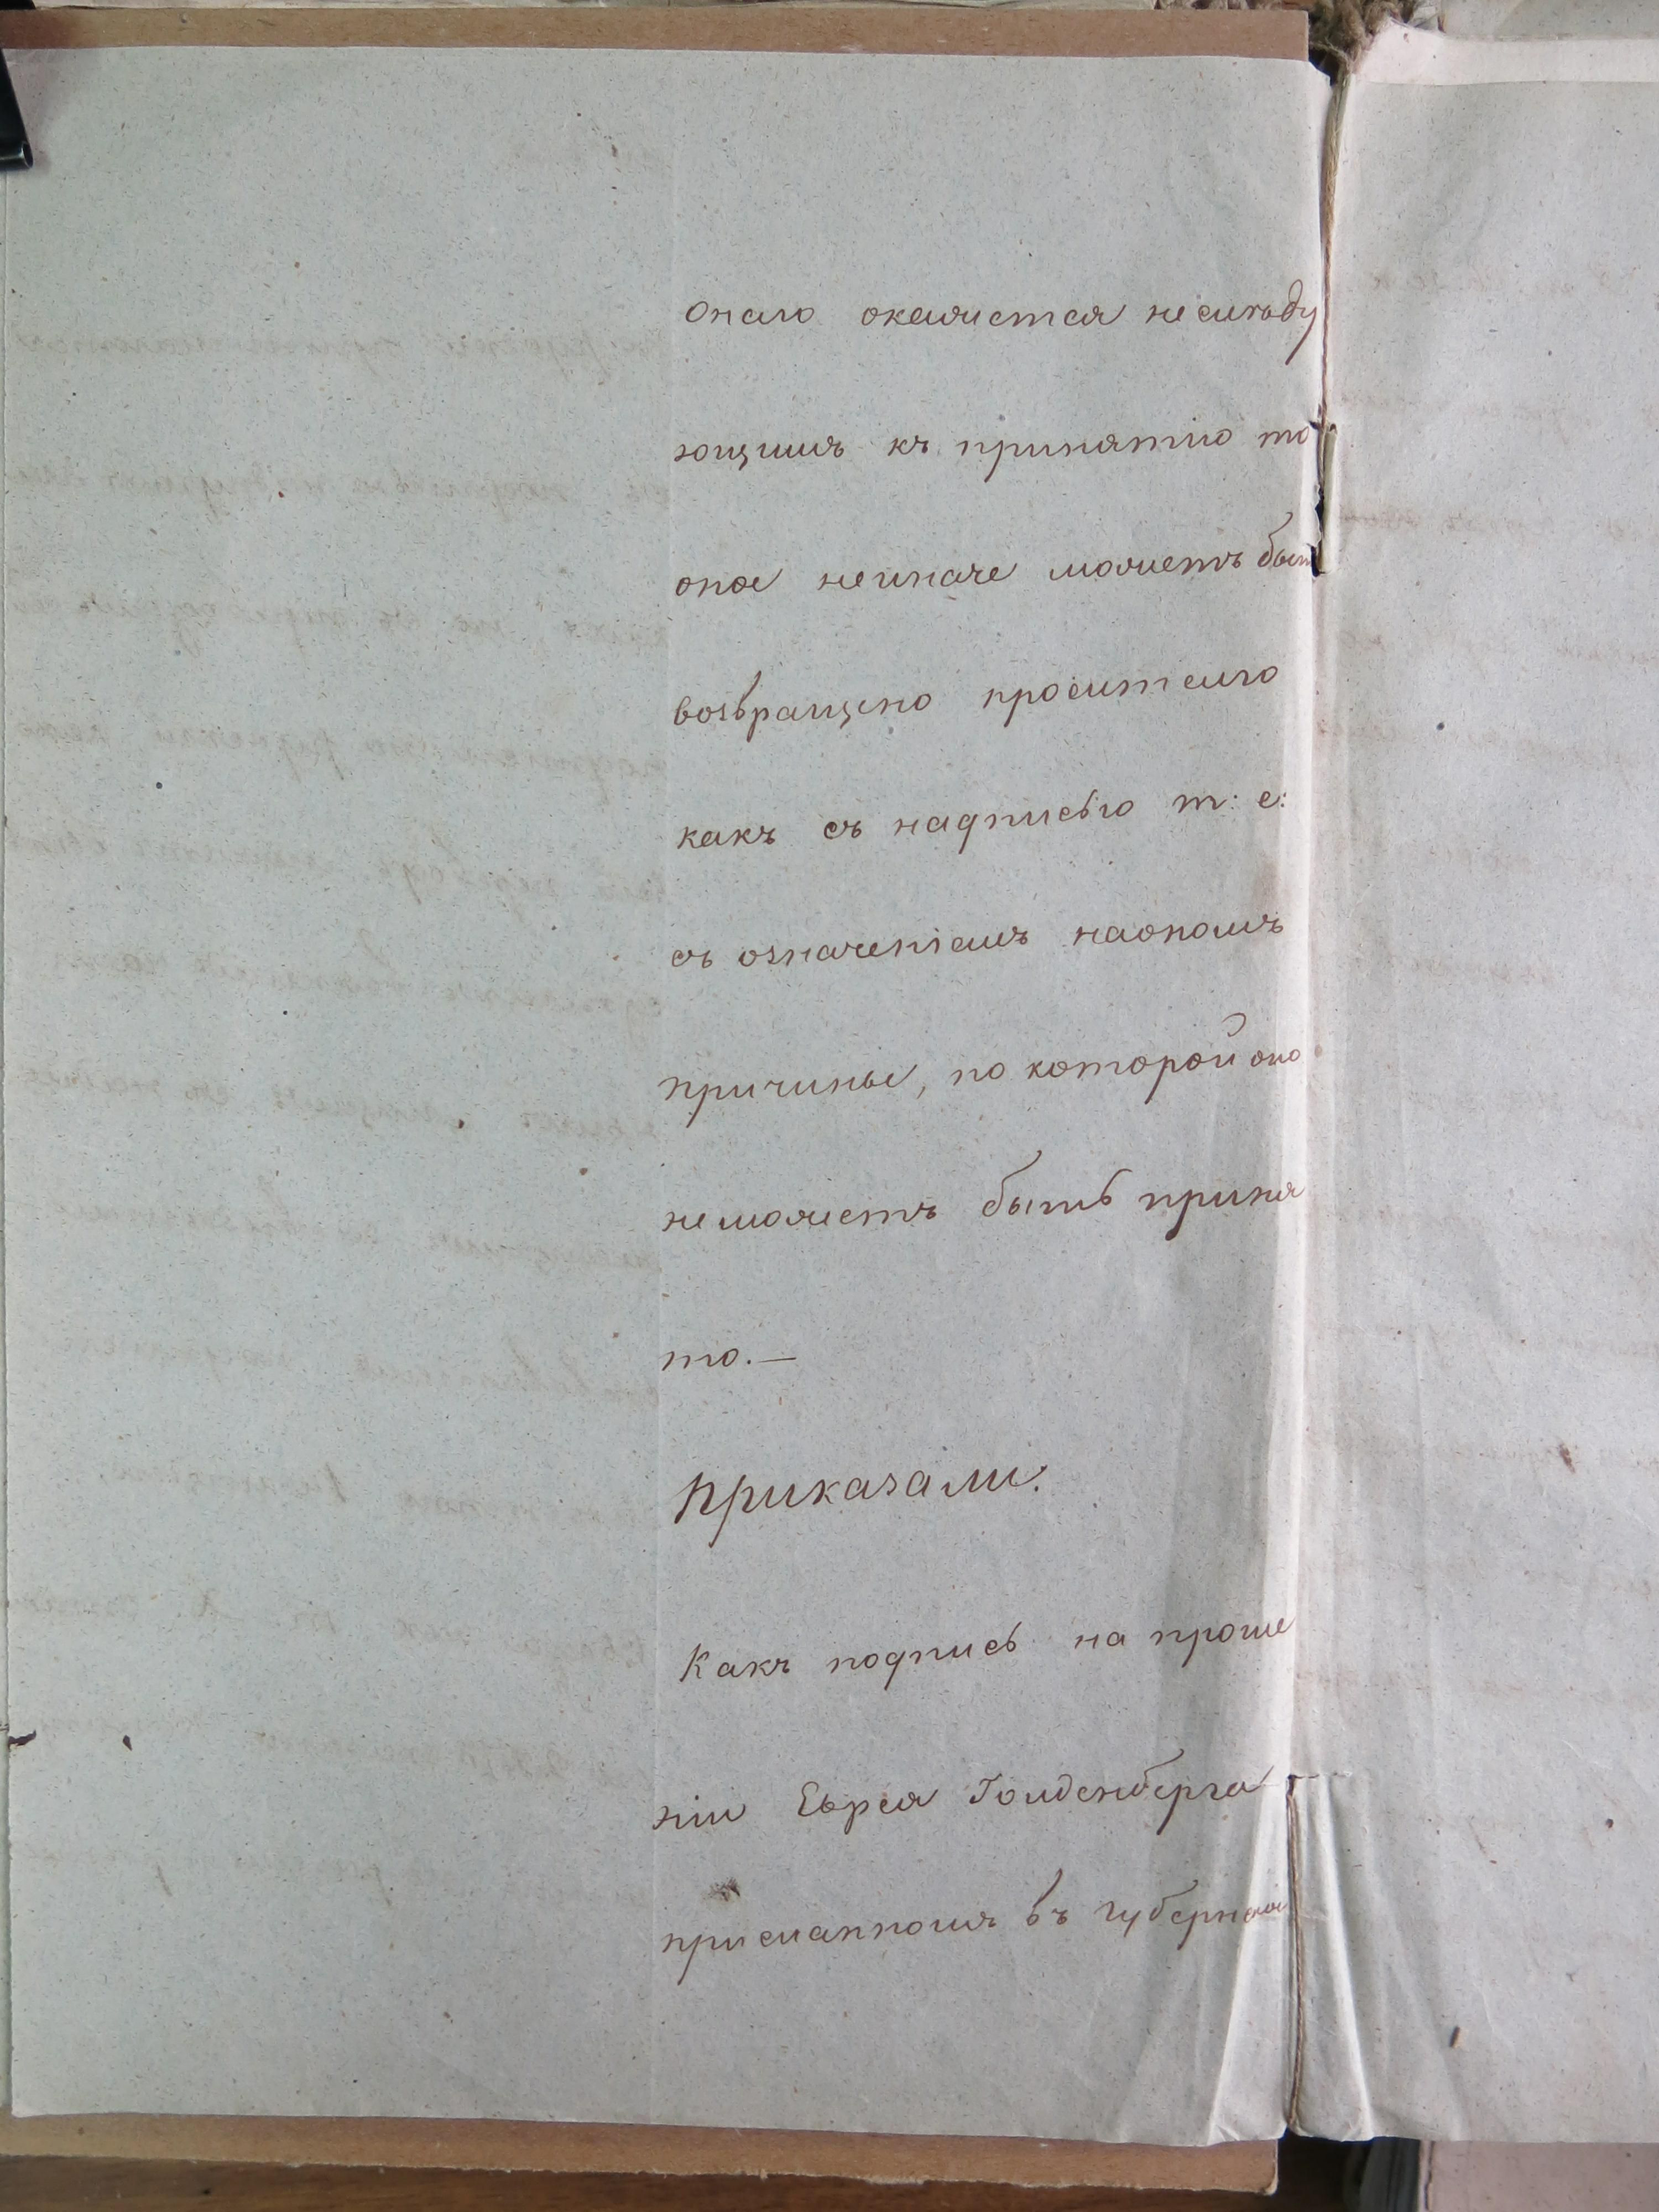 онаго окажется неслѣду
ющимъ къ принятію то
оное неиначе можетъ быть
возвращено просителю
какъ съ надписью т: е:
съ означеніемъ наономъ
причины, по которой оно
неможетъ быть приня
то.—
Приказали:
Какъ подпись на проше
ніи Еврея Голденберга
присланномъ въ Губернское